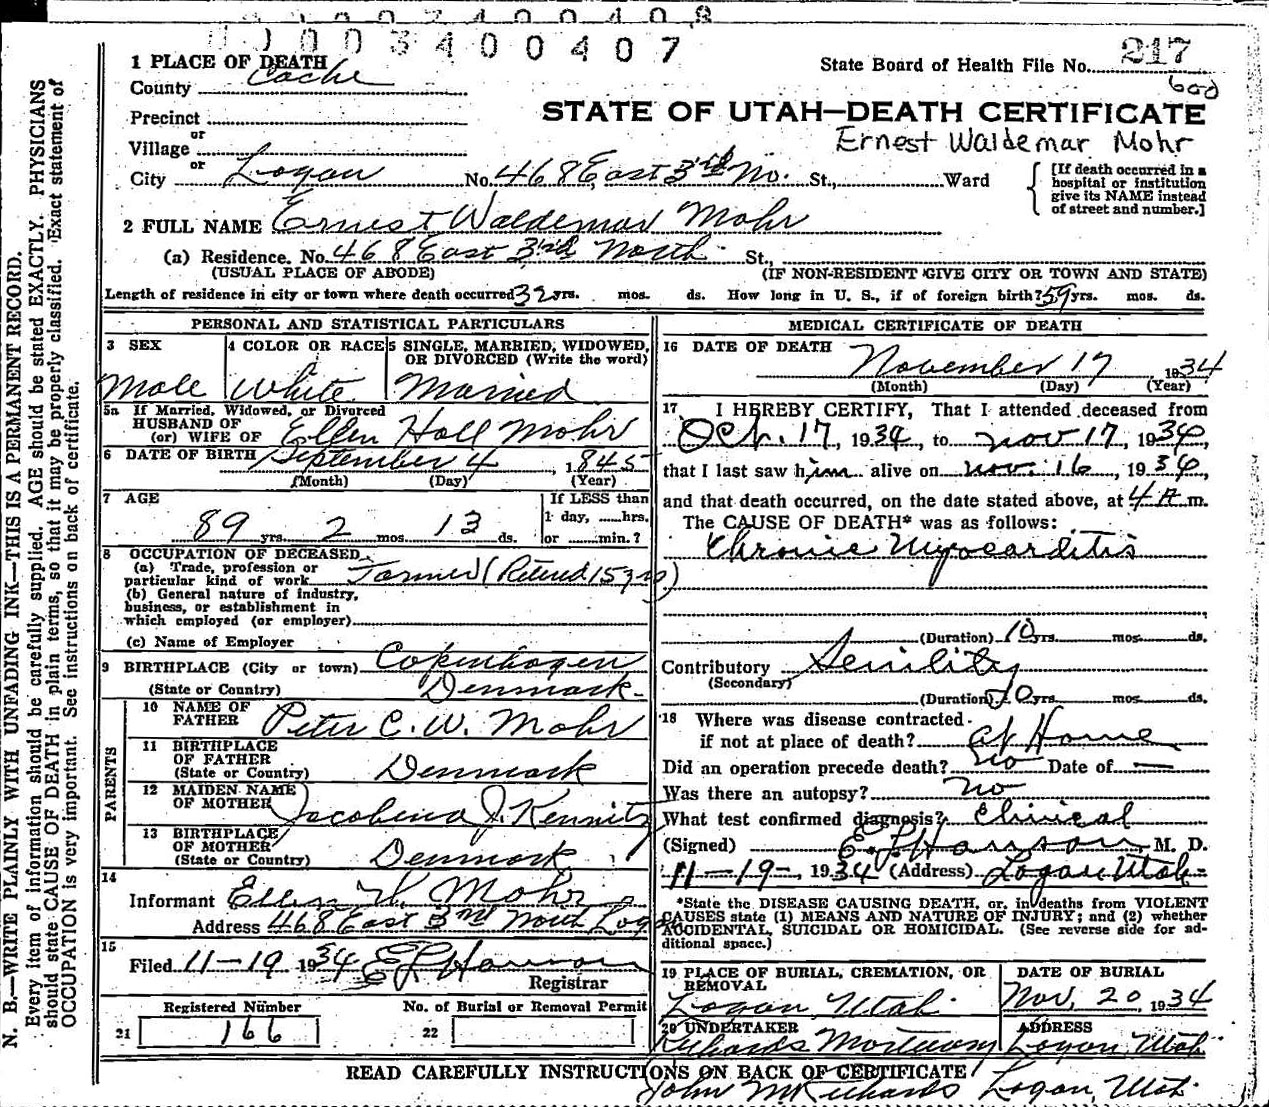 0003400407
1 PLACE OF DEATH
County Cache
State Board of Health File No. 217
STATE OF UTAH—DEATH CERTIFICATE
Precinct
or
Village
Ernest Waldemar Mohr
or
City Logan No. 468 East 3rd No. St., Ward
[If death occurred in a hospital or institution give its NAME instead of street and number.]
2 FULL NAME Ernest Waldemar Mohr
(a) Residence. No. 468 East 3rd North St.,
(USUAL PLACE OF ABODE) (IF NON-RESIDENT GIVE CITY OR TOWN AND STATE)
Length of residence in city or town where death occurred 32 yrs. mos. ds. How long in U. S., if of foreign birth? 59 yrs. mos. ds.
PERSONAL AND STATISTICAL PARTICULARS
3 SEX 4 COLOR OR RACE 5 SINGLE, MARRIED, WIDOWED, OR DIVORCED (Write the word)
Male White Married
5a If Married, Widowed, or Divorced
HUSBAND OF
(or) WIFE OF Ellen Hall Mohr
6 DATE OF BIRTH September 4, 1845
(Month) (Day) (Year)
7 AGE If LESS than
1 day, ......hrs.
89 yrs. 2 mos. 13 ds. or ......min.?
8 OCCUPATION OF DECEASED
(a) Trade, profession or
particular kind of work Farmer (Retired 15 yrs)
(b) General nature of industry,
business, or establishment in
which employed (or employer)
(c) Name of Employer
9 BIRTHPLACE (City or town) Copenhagen
(State or Country) Denmark
PARENTS
10 NAME OF
FATHER Peter C. W. Mohr
11 BIRTHPLACE
OF FATHER
(State or Country) Denmark
12 MAIDEN NAME
OF MOTHER Jacobena J. Kennitz
13 BIRTHPLACE
OF MOTHER
(State or Country) Denmark
14
Informant Ellen H. Mohr
Address 468 East 3rd North Logan
15
Filed 11-19 1934
Registrar
Registered Number No. of Burial or Removal Permit
21 166 22
MEDICAL CERTIFICATE OF DEATH
16 DATE OF DEATH November 17 1934
(Month) (Day) (Year)
17 I HEREBY CERTIFY, That I attended deceased from
Oct. 17, 1934, to Nov 17, 1934,
that I last saw him alive on Nov. 16, 1934,
and that death occurred, on the date stated above, at 4 A m.
The CAUSE OF DEATH* was as follows:
Chronic Myocarditis
(Duration) 10 yrs. mos. ds.
Contributory Senility
(Secondary)
(Duration) yrs. mos. ds.
18 Where was disease contracted
if not at place of death? at Home
Did an operation precede death? no Date of —
Was there an autopsy? no
What test confirmed diagnosis? Clinical
(Signed) M. D.
11-19-, 1934 (Address) Logan Utah
*State the DISEASE CAUSING DEATH, or, in deaths from VIOLENT
CAUSES state (1) MEANS AND NATURE OF INJURY; and (2) whether
ACCIDENTAL, SUICIDAL OR HOMICIDAL. (See reverse side for ad-
ditional space.)
19 PLACE OF BURIAL, CREMATION, OR REMOVAL DATE OF BURIAL
Logan, Utah. Nov. 20, 1934
20 UNDERTAKER ADDRESS
Richards Mortuary Logan, Utah
READ CAREFULLY INSTRUCTIONS ON BACK OF CERTIFICATE
John M Richards Logan, Utah.
N. B.—WRITE PLAINLY WITH UNFADING INK—THIS IS A PERMANENT RECORD.
Every item of information should be carefully supplied. AGE should be stated EXACTLY. PHYSICIANS
should state CAUSE OF DEATH in plain terms, so that it may be properly classified. Exact statement of
OCCUPATION is very important. See instructions on back of certificate.